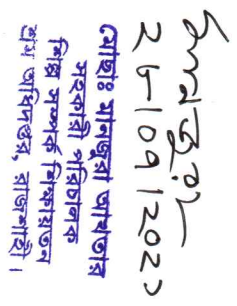 ২৮/০৭/২০২১
মোছাঃ মানছুরা আখতার
সহকারী পরিচালক
শিল্প সম্পর্ক শিক্ষায়তন
শ্রম অধিদপ্তর, রাজশাহী।